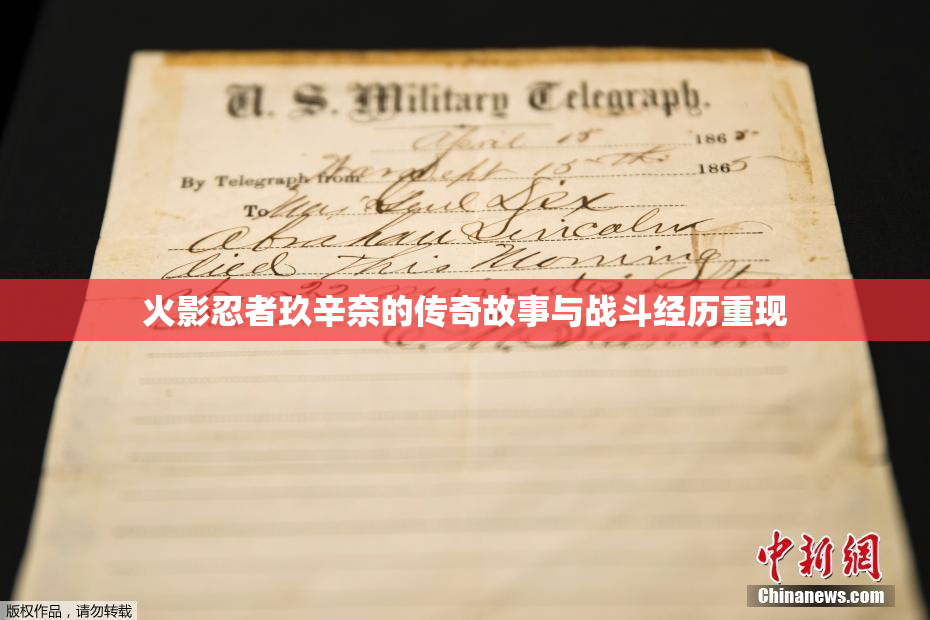 U. S. Military Telegraph.
April 15 1865
By Telegraph from War Dept 15th 1865
To Maj Genl Dix
Abraham Lincoln
died This Morning
22 minutes after
火影忍者玖辛奈的传奇故事与战斗经历重现
中新网
Chinanews.com
版权作品，请勿转载